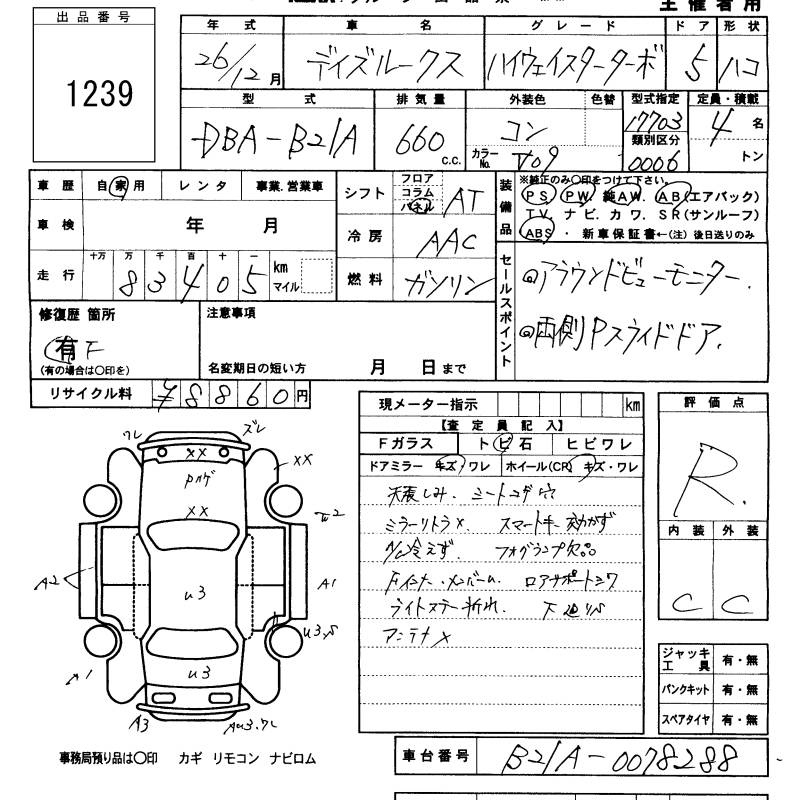 主催者用
出品番号
1239
年式 車名 グレード ドア 形状
26/12月 デイズルークス ハイウェイスターターボ 5 ハコ
型式 排気量 外装色 色替 型式指定 定員・積載
DBA-B21A 660 c.c. コン 17703 4 名
カラーNo. V09 類別区分 0006 トン
車歴 自家用 レンタ 事業.営業車
車検 年 月
走行 十万 万 千 百 十 一
83405 km マイル
シフト フロア コラム パネル AT
冷房 AAC
燃料 ガソリン
装備品 ※純正のみ○印をつけて下さい。
PS. PW. 純AW. AB(エアバック)
TV. ナビ. カワ. SR(サンルーフ)
ABS ・ 新車保証書←(注) 後日送りのみ
セールスポイント
◎アラウンドビューモニター.
◎両側Pスライドドア.
修復歴 箇所
有 F
(有の場合は○印を)
注意事項
名変期日の短い方 月 日まで
リサイクル料 ¥8860円
現メーター指示 km
【査定員記入】
Fガラス トビ石 ヒビワレ
ドアミラー キズ・ワレ ホイール(CR) キズ・ワレ
天張しみ. シートコゲ穴
ミラーリトラ×. スマートキー効かず
A/C冷えず. フォグランプ欠品
Fインナー・メンバーム. ロアサポートコワ
ライトステー折れ. 下廻りS
アンテナ×
評価点
R.
内装 外装
C C
ワレ ズレ
×× ××
Pカゲ
××
A2 u3 A1
u3.S
A1 u3
A3 Au3.ワレ
ジャッキ工具 有・無
パンクキット 有・無
スペアタイヤ 有・無
事務局預り品は○印 カギ リモコン ナビロム
車台番号 B21A-0078288